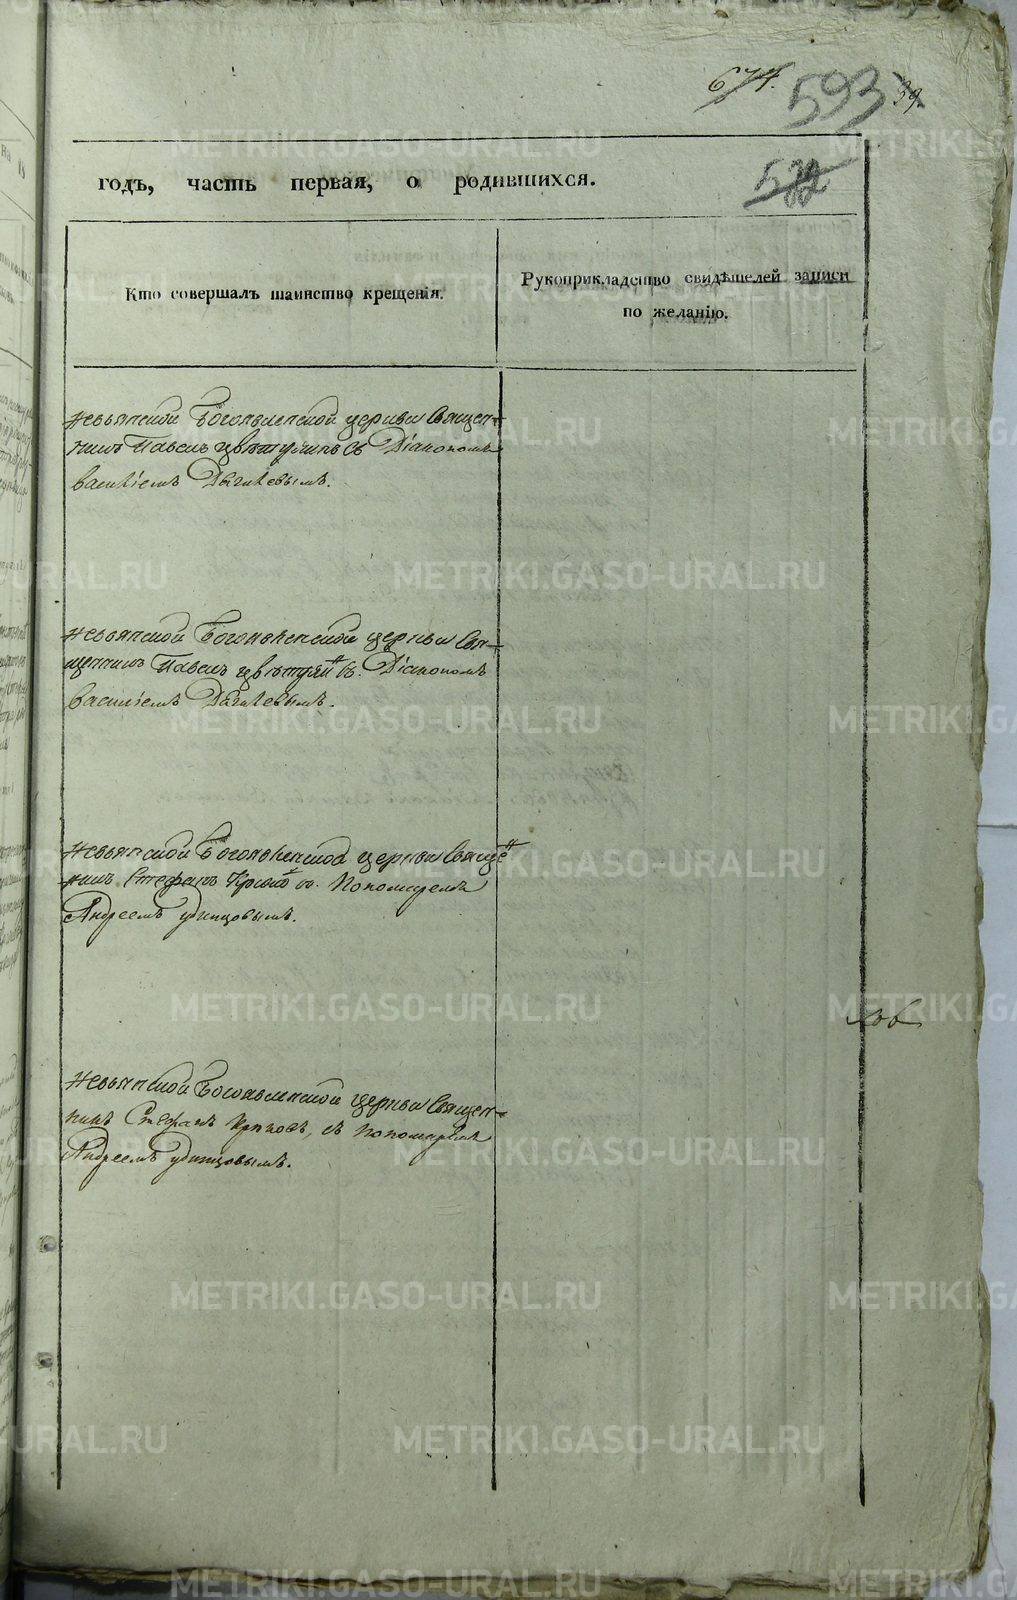 674. 593 39.
годъ, часть первая, о родившихся. 522
Кто совершалъ таинство крещенія.
Рукоприкладство свидѣтелей записи
по желанію.
Невьянской Богоявленской церкви Священ-
никъ Павелъ Цвѣтухинъ съ Діакономъ
Василіемъ Дягилевымъ.
Невьянской Богоявленской церкви Свя-
щенникъ Павелъ съ Діакономъ
Василіемъ Дягилевымъ.
Невьянской Богоявленской церкви Священ
никъ Стефанъ съ Пономаремъ
Андреемъ Удинцовымъ.
Невьянской Богоявленской церкви Священ-
никъ Стефанъ съ Пономаремъ
Андреемъ Удинцовымъ.
METRIKI.GASO-URAL.RU